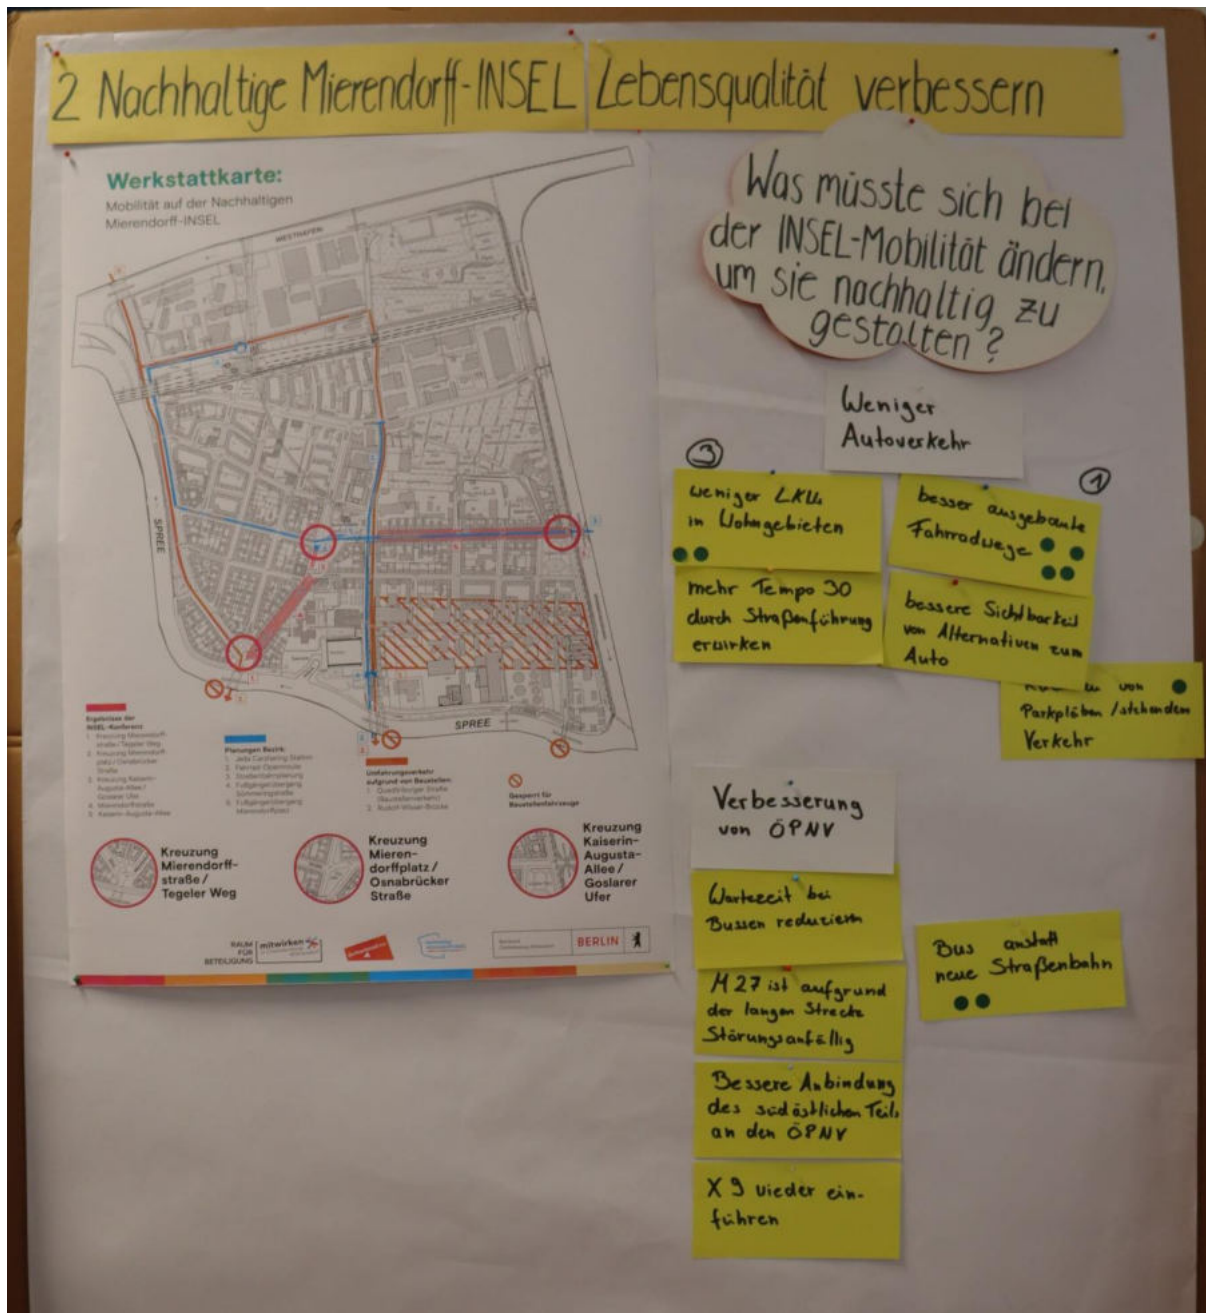 2 Nachhaltige Mierendorff-INSEL Lebensqualität verbessern
Werkstattkarte:
Mobilität auf der Nachhaltigen
Mierendorff-INSEL
WESTHAFEN
SPREE
SPREE
Ergebnisse der
INSEL-Konferenz
1. Kreuzung Mierendorff-
straße/Tegeler Weg
2. Kreuzung Mierendorff-
platz/Osnabrücker
Straße
3. Kreuzung Kaiserin-
Augusta-Allee/
Goslarer Ufer
4. Mierendorffstraße
5. Kaiserin-Augusta-Allee
Planungen Bezirk:
1. Jelbi Carsharing Station
2. Fahrrad-Openroute
3. Straßenbahnplanung
4. Fußgängerübergang
Sömmeringstraße
5. Fußgängerübergang
Mierendorffplatz
Umfahrungsverkehr
aufgrund von Baustellen:
1. Quedlinburger Straße
(Baustellenverkehr)
2. Rudolf-Wissell-Brücke
Gesperrt für
Baustellenfahrzeuge
Kreuzung
Mierendorff-
straße /
Tegeler Weg
Kreuzung
Mieren-
dorffplatz /
Osnabrücker
Straße
Kreuzung
Kaiserin-
Augusta-
Allee /
Goslarer
Ufer
RAUM
FÜR
BETEILIGUNG
mitwirken
BERLIN
Was müsste sich bei
der INSEL-Mobilität ändern,
um sie nachhaltig zu
gestalten?
Weniger
Autoverkehr
3
weniger LKWs
in Wohngebieten
mehr Tempo 30
durch Straßenführung
erwirken
1
besser ausgebaute
Fahrradwege
bessere Sichtbarkeit
von Alternativen zum
Auto
von
Parkplätzen/stehendem
Verkehr
Verbesserung
von ÖPNV
Wartezeit bei
Bussen reduzieren
M27 ist aufgrund
der langen Strecke
Störungsanfällig
Bessere Anbindung
des südöstlichen Teils
an den ÖPNV
X9 wieder ein-
führen
Bus anstatt
neue Straßenbahn